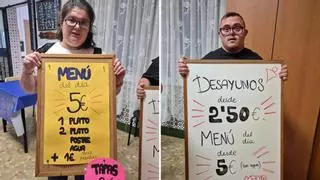 MENÚ
del día
5€
1 PLATO
2 PLATO
POSTRE
AGUA
+ 1€
TAPAS
DESAYUNOS
desde
2'50€
MENÚ
del día
desde
5€